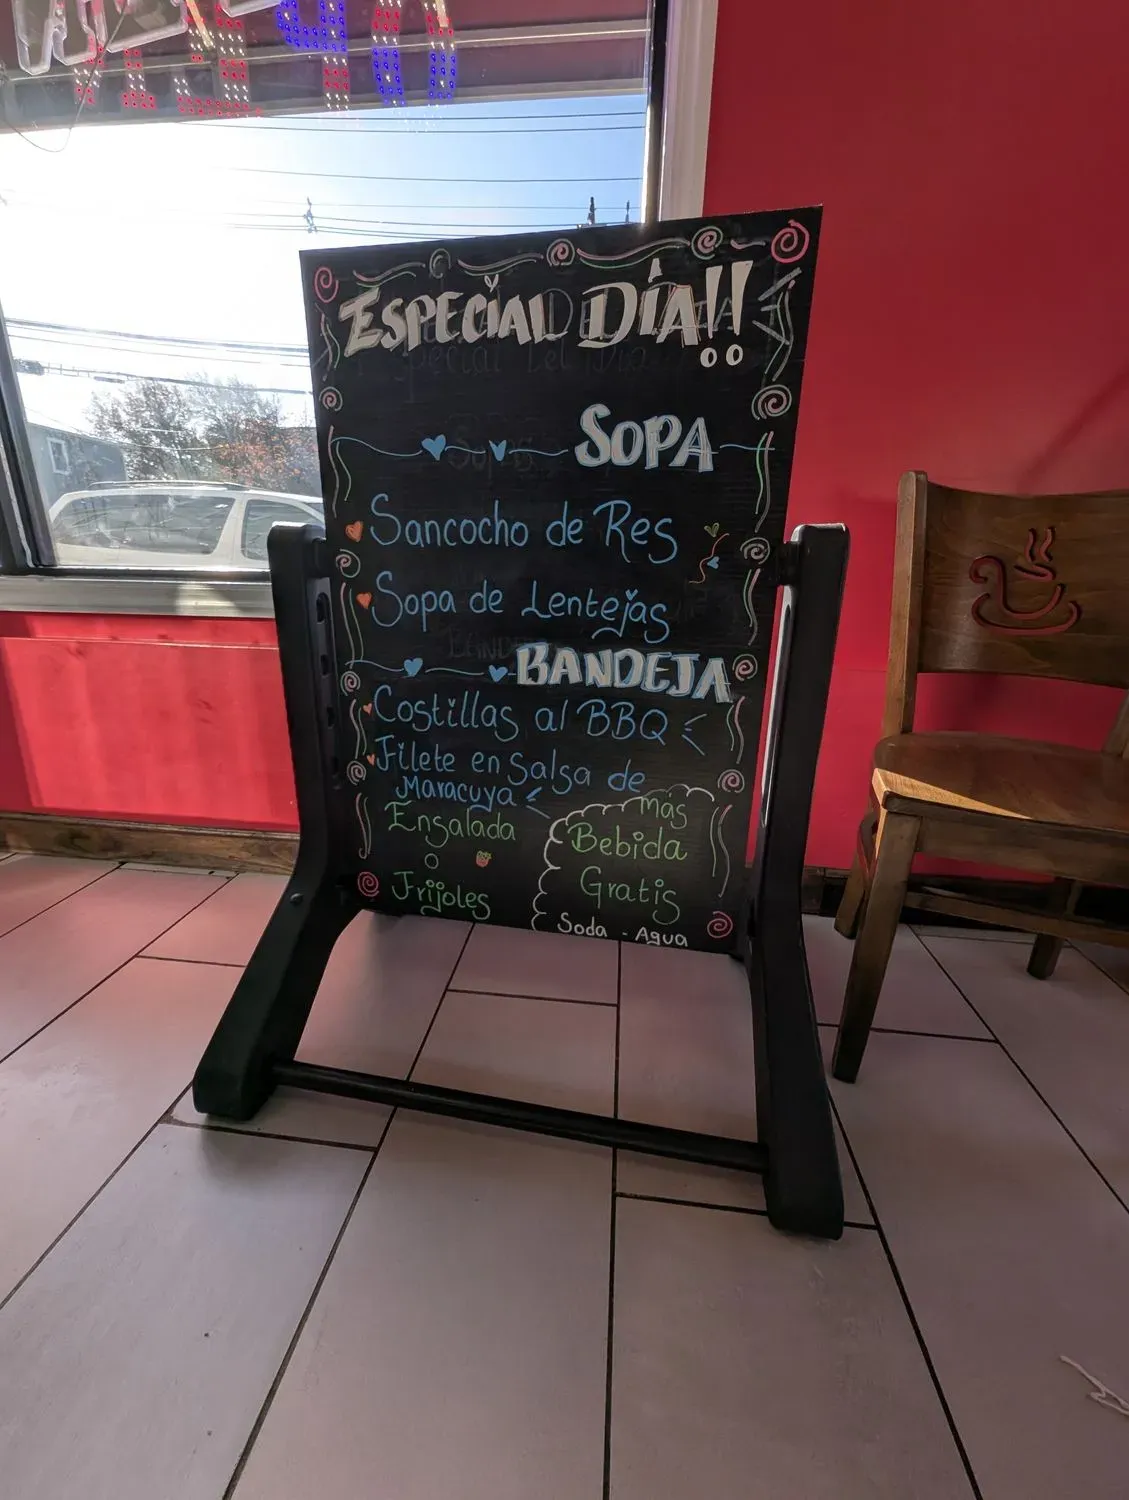 ESPECIAL DÍA!!
SOPA
Sancocho de Res
Sopa de Lentejas
BANDEJA
Costillas al BBQ
Filete en Salsa de
Maracuya
Ensalada
O
Frijoles
más
Bebida
Gratis
Soda - Agua